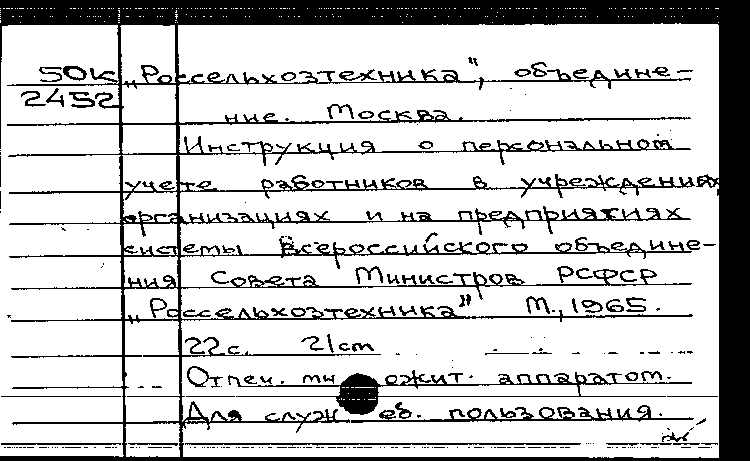 50к „Россельхозтехника", объедине-
2452 ние. Москва.
Инструкция о персональном
учете работников в учреждениях
организациях и на предприятиях
системы Всероссийского объедине-
ния Совета Министров РСФСР
„Россельхозтехника" М., 1965.
22с. 21cm
Отпеч. мн ожит. аппаратом.
Для служ еб. пользования.